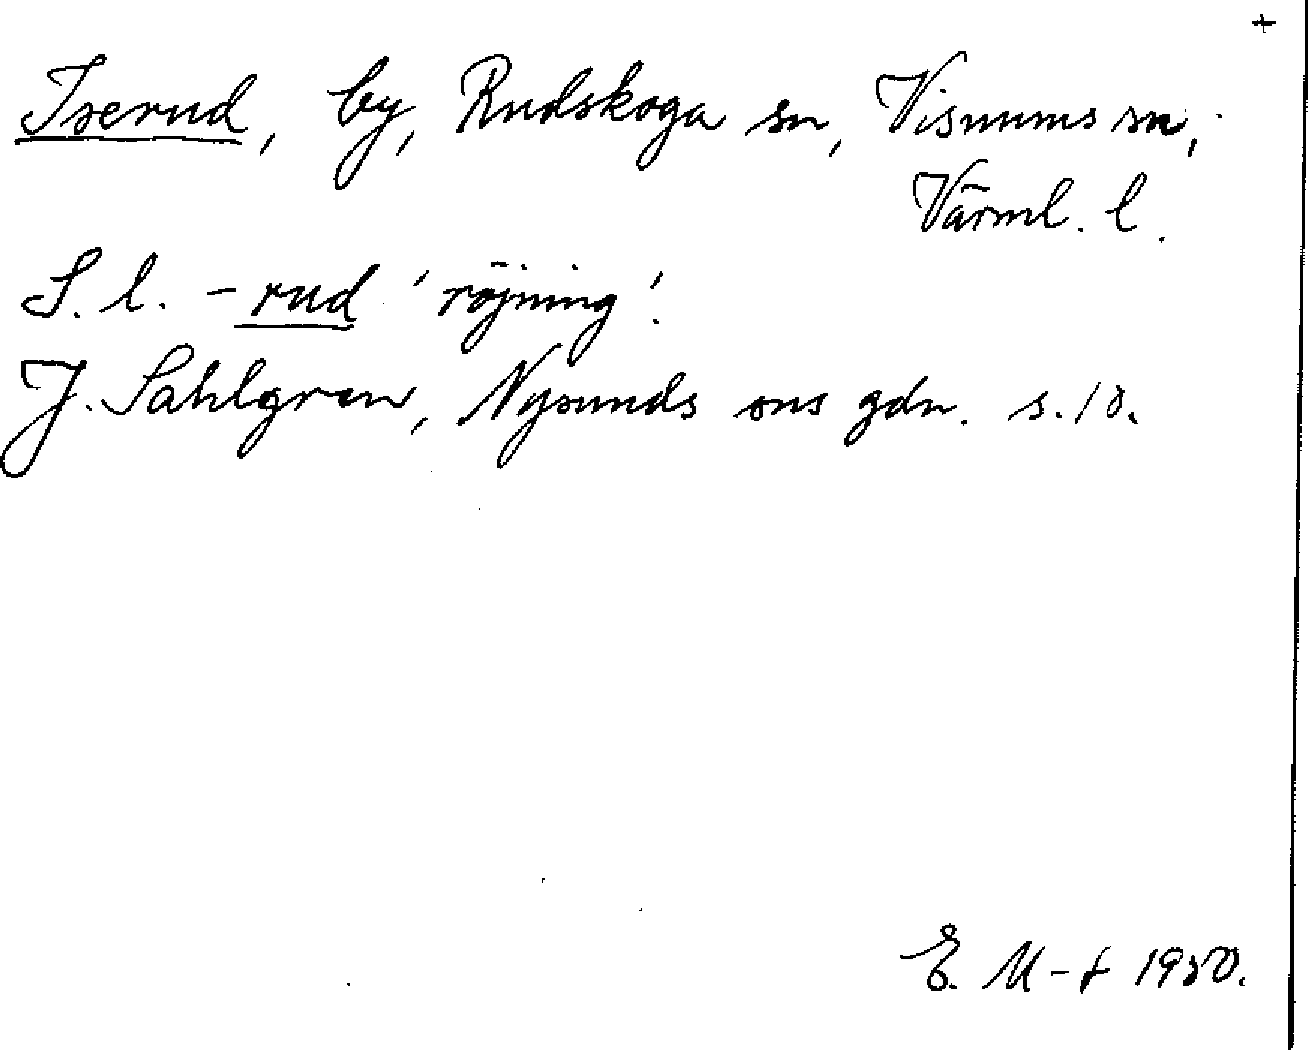 +
Iserud, by, Rudskoga sn, Visnums sn,
Värml. l.
S. l. -rud 'röjning'.
J. Sahlgren, Nysunds sns gdn. s. 10.
E. M-t 1950.